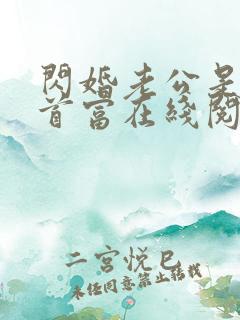 閃婚老公是
首富在綫閱
二宮悅巳
未经同意禁止转载